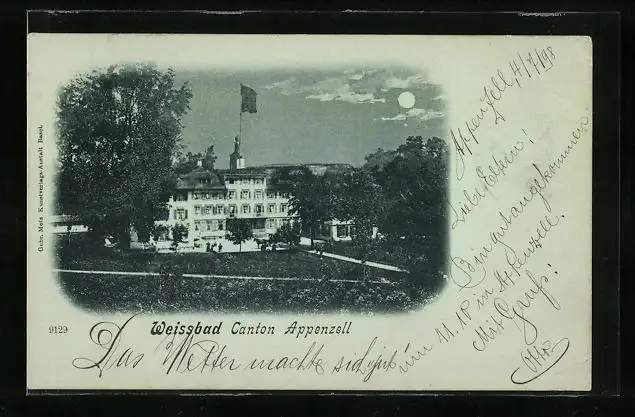 Appenzell 4/7/98
Liebe Eltern!
Bin gut angekommen
um 11.10 in Appenzell.
Mit Gruß!
Otto
Gebr. Metz Kunstverlags-Anstalt Basel.
9129
Weissbad Canton Appenzell
Das Wetter macht sich gut!